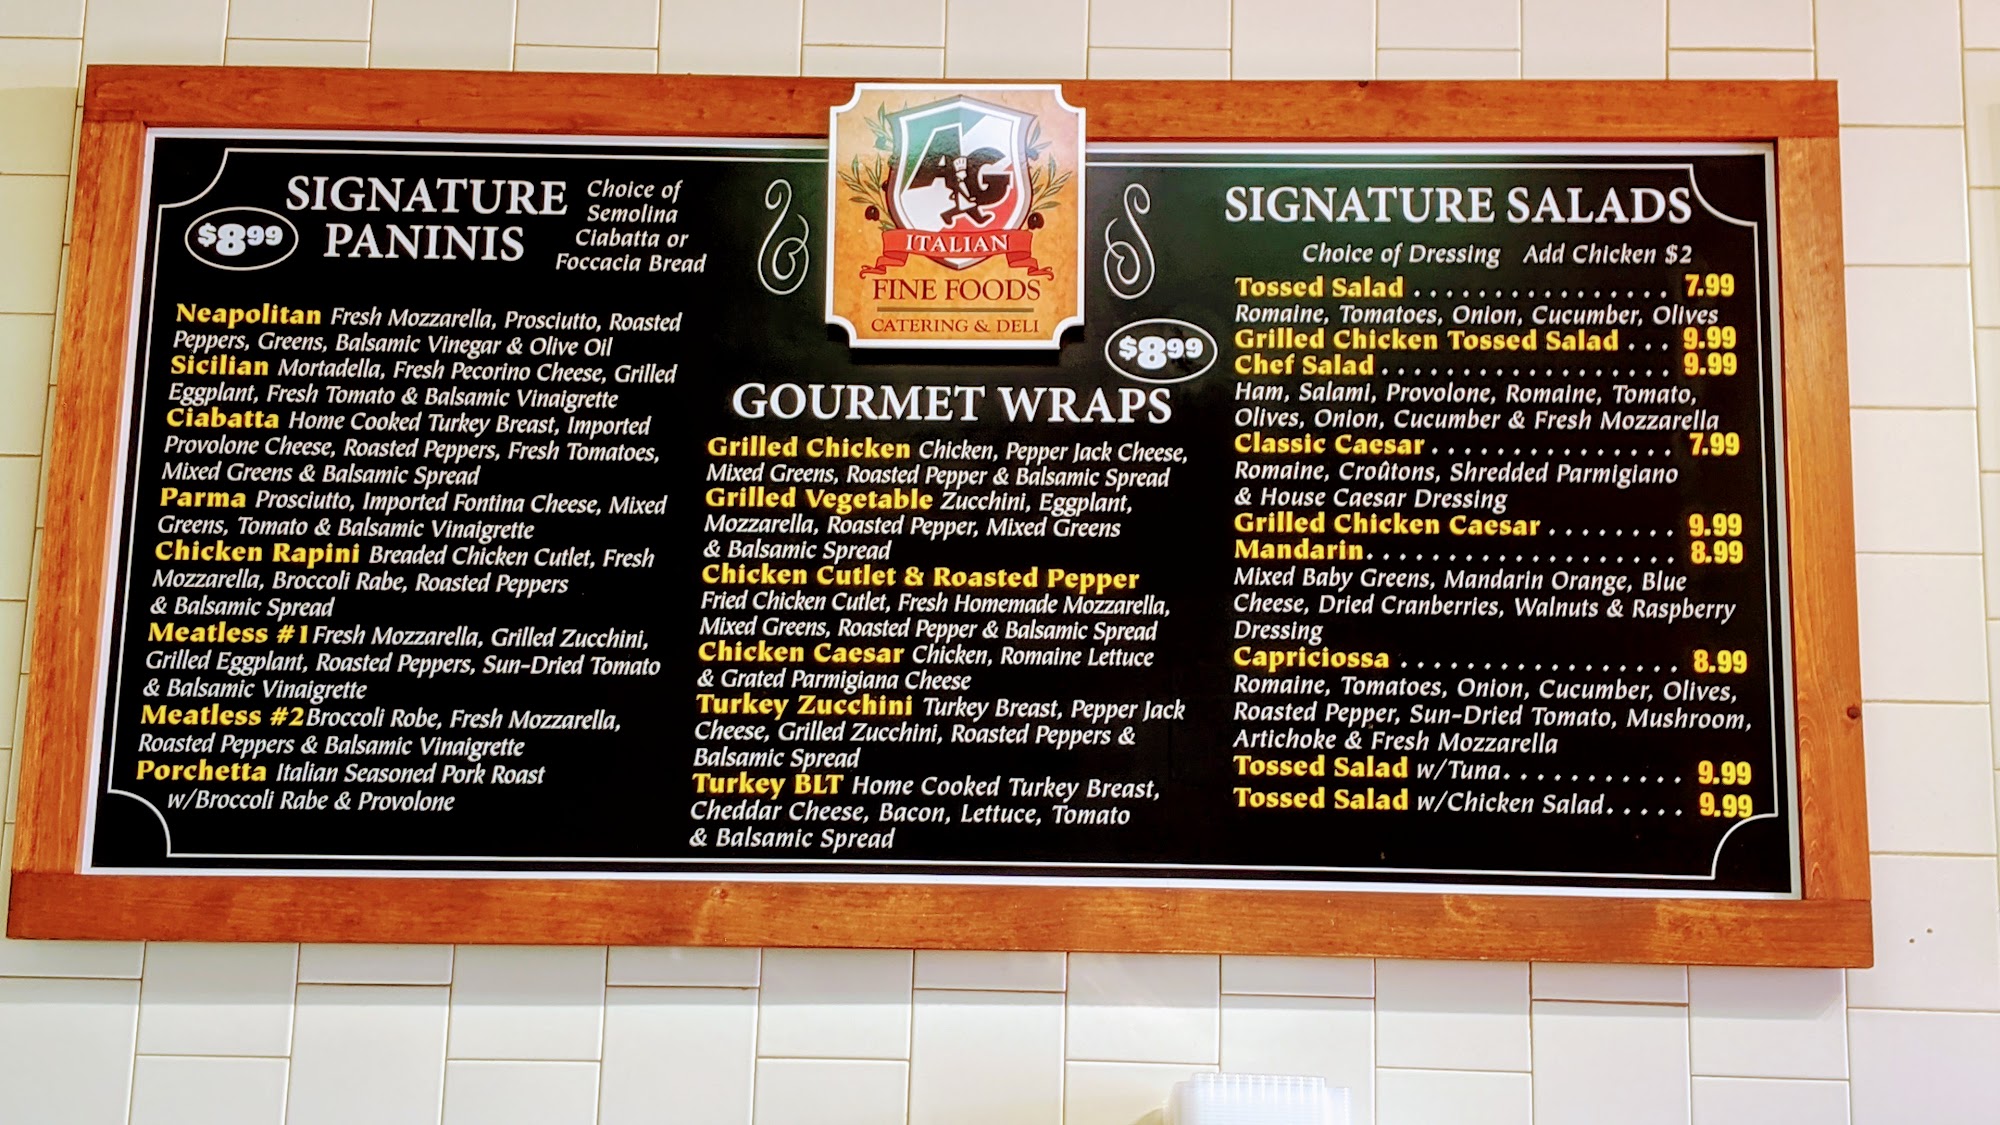 SIGNATURE
PANINIS
$8.99
Choice of
Semolina
Ciabatta or
Foccacia Bread
Neapolitan Fresh Mozzarella, Prosciutto, Roasted
Peppers, Greens, Balsamic Vinegar & Olive Oil
Sicilian Mortadella, Fresh Pecorino Cheese, Grilled
Eggplant, Fresh Tomato & Balsamic Vinaigrette
Ciabatta Home Cooked Turkey Breast, Imported
Provolone Cheese, Roasted Peppers, Fresh Tomatoes,
Mixed Greens & Balsamic Spread
Parma Prosciutto, Imported Fontina Cheese, Mixed
Greens, Tomato & Balsamic Vinaigrette
Chicken Rapini Breaded Chicken Cutlet, Fresh
Mozzarella, Broccoli Rabe, Roasted Peppers
& Balsamic Spread
Meatless #1 Fresh Mozzarella, Grilled Zucchini,
Grilled Eggplant, Roasted Peppers, Sun-Dried Tomato
& Balsamic Vinaigrette
Meatless #2 Broccoli Robe, Fresh Mozzarella,
Roasted Peppers & Balsamic Vinaigrette
Porchetta Italian Seasoned Pork Roast
w/Broccoli Rabe & Provolone
AG
ITALIAN
FINE FOODS
CATERING & DELI
$8.99
GOURMET WRAPS
Grilled Chicken Chicken, Pepper Jack Cheese,
Mixed Greens, Roasted Pepper & Balsamic Spread
Grilled Vegetable Zucchini, Eggplant,
Mozzarella, Roasted Pepper, Mixed Greens
& Balsamic Spread
Chicken Cutlet & Roasted Pepper
Fried Chicken Cutlet, Fresh Homemade Mozzarella,
Mixed Greens, Roasted Pepper & Balsamic Spread
Chicken Caesar Chicken, Romaine Lettuce
& Grated Parmigiana Cheese
Turkey Zucchini Turkey Breast, Pepper Jack
Cheese, Grilled Zucchini, Roasted Peppers &
Balsamic Spread
Turkey BLT Home Cooked Turkey Breast,
Cheddar Cheese, Bacon, Lettuce, Tomato
& Balsamic Spread
SIGNATURE SALADS
Choice of Dressing Add Chicken $2
Tossed Salad . . . . . . . . . . . . . . . . . 7.99
Romaine, Tomatoes, Onion, Cucumber, Olives
Grilled Chicken Tossed Salad . . . 9.99
Chef Salad . . . . . . . . . . . . . . . . . . . 9.99
Ham, Salami, Provolone, Romaine, Tomato,
Olives, Onion, Cucumber & Fresh Mozzarella
Classic Caesar . . . . . . . . . . . . . . . . 7.99
Romaine, Croûtons, Shredded Parmigiano
& House Caesar Dressing
Grilled Chicken Caesar . . . . . . . . 9.99
Mandarin. . . . . . . . . . . . . . . . . . . . 8.99
Mixed Baby Greens, Mandarin Orange, Blue
Cheese, Dried Cranberries, Walnuts & Raspberry
Dressing
Capriciossa . . . . . . . . . . . . . . . . . . 8.99
Romaine, Tomatoes, Onion, Cucumber, Olives,
Roasted Pepper, Sun-Dried Tomato, Mushroom,
Artichoke & Fresh Mozzarella
Tossed Salad w/Tuna. . . . . . . . . . . 9.99
Tossed Salad w/Chicken Salad. . . . . 9.99